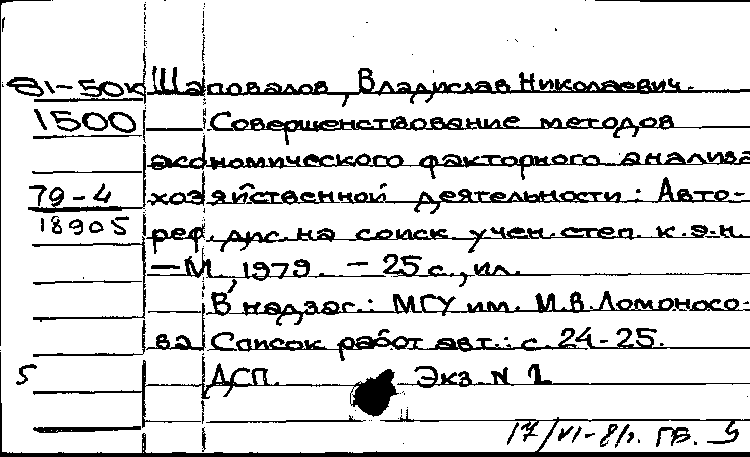 81-50к Шаповалов, Владислав Николаевич.
1500 Совершенствование методов
экономического факторного анализа
79-4 хозяйственной деятельности: Авто-
18905
реф. дис. на соиск учен. степ. к.э.н.
—М., 1979. - 25 с., ил.
В надзаг.: МГУ им. М.В. Ломоносо-
ва Список работ авт.: с. 24-25.
5 ДСП. Экз N 1
17/VI-81г. ГВ.